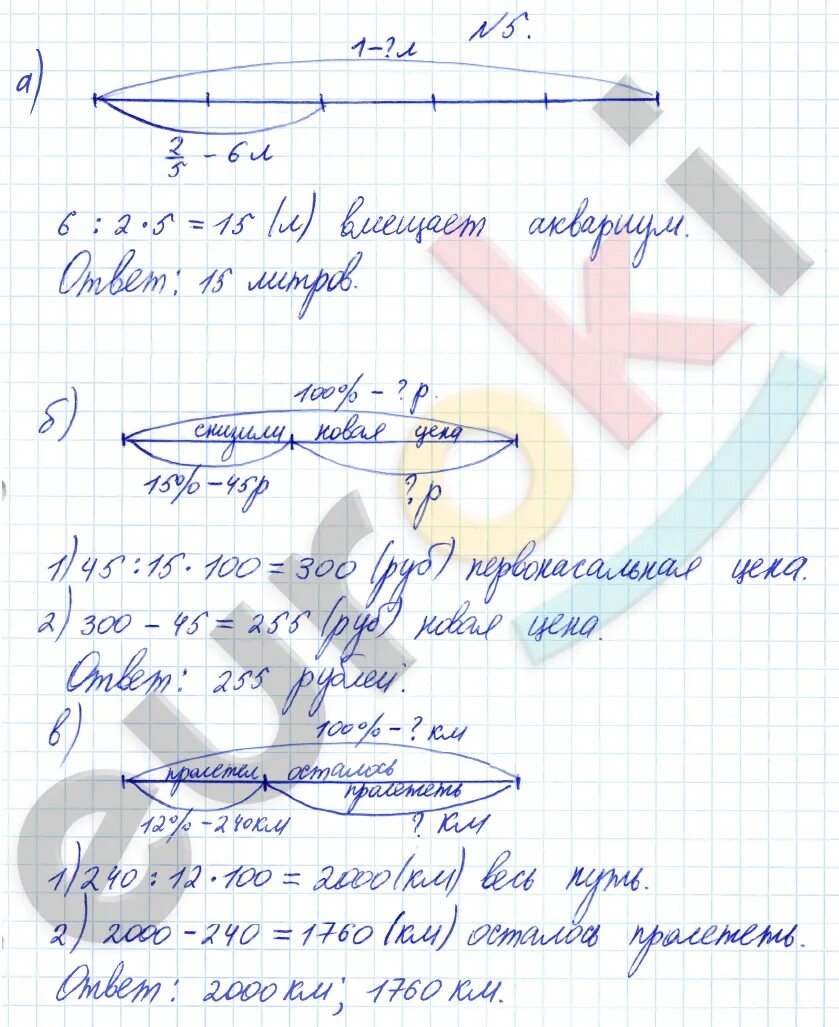 №5.
а)
1-?л
2/5 - 6л
6 : 2 · 5 = 15 (л) вмещает аквариум.
Ответ: 15 литров.
б)
100% - ? р.
снизили новая цена
15% - 45р ? р
1) 45 : 15 · 100 = 300 (руб) первоначальная цена.
2) 300 - 45 = 255 (руб) новая цена.
Ответ: 255 рублей.
в)
100% - ? км
пролетел осталось
пролететь
12% - 240км ? км
1) 240 : 12 · 100 = 2000 (км) весь путь.
2) 2000 - 240 = 1760 (км) осталось пролететь.
Ответ: 2000 км; 1760 км.
euroki